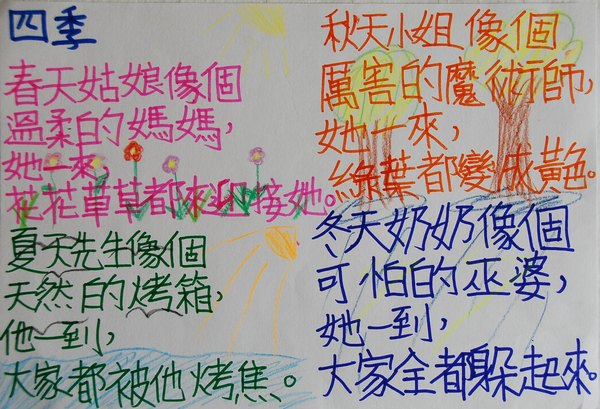 四季
春天姑娘像個
溫柔的媽媽，
她一來，
花花草草都來迎接她。
夏天先生像個
天然的烤箱，
他一到，
大家都被他烤焦。
秋天小姐像個
厲害的魔術師，
她一來，
綠葉都變成黃色。
冬天奶奶像個
可怕的巫婆，
她一到，
大家全都躲起來。